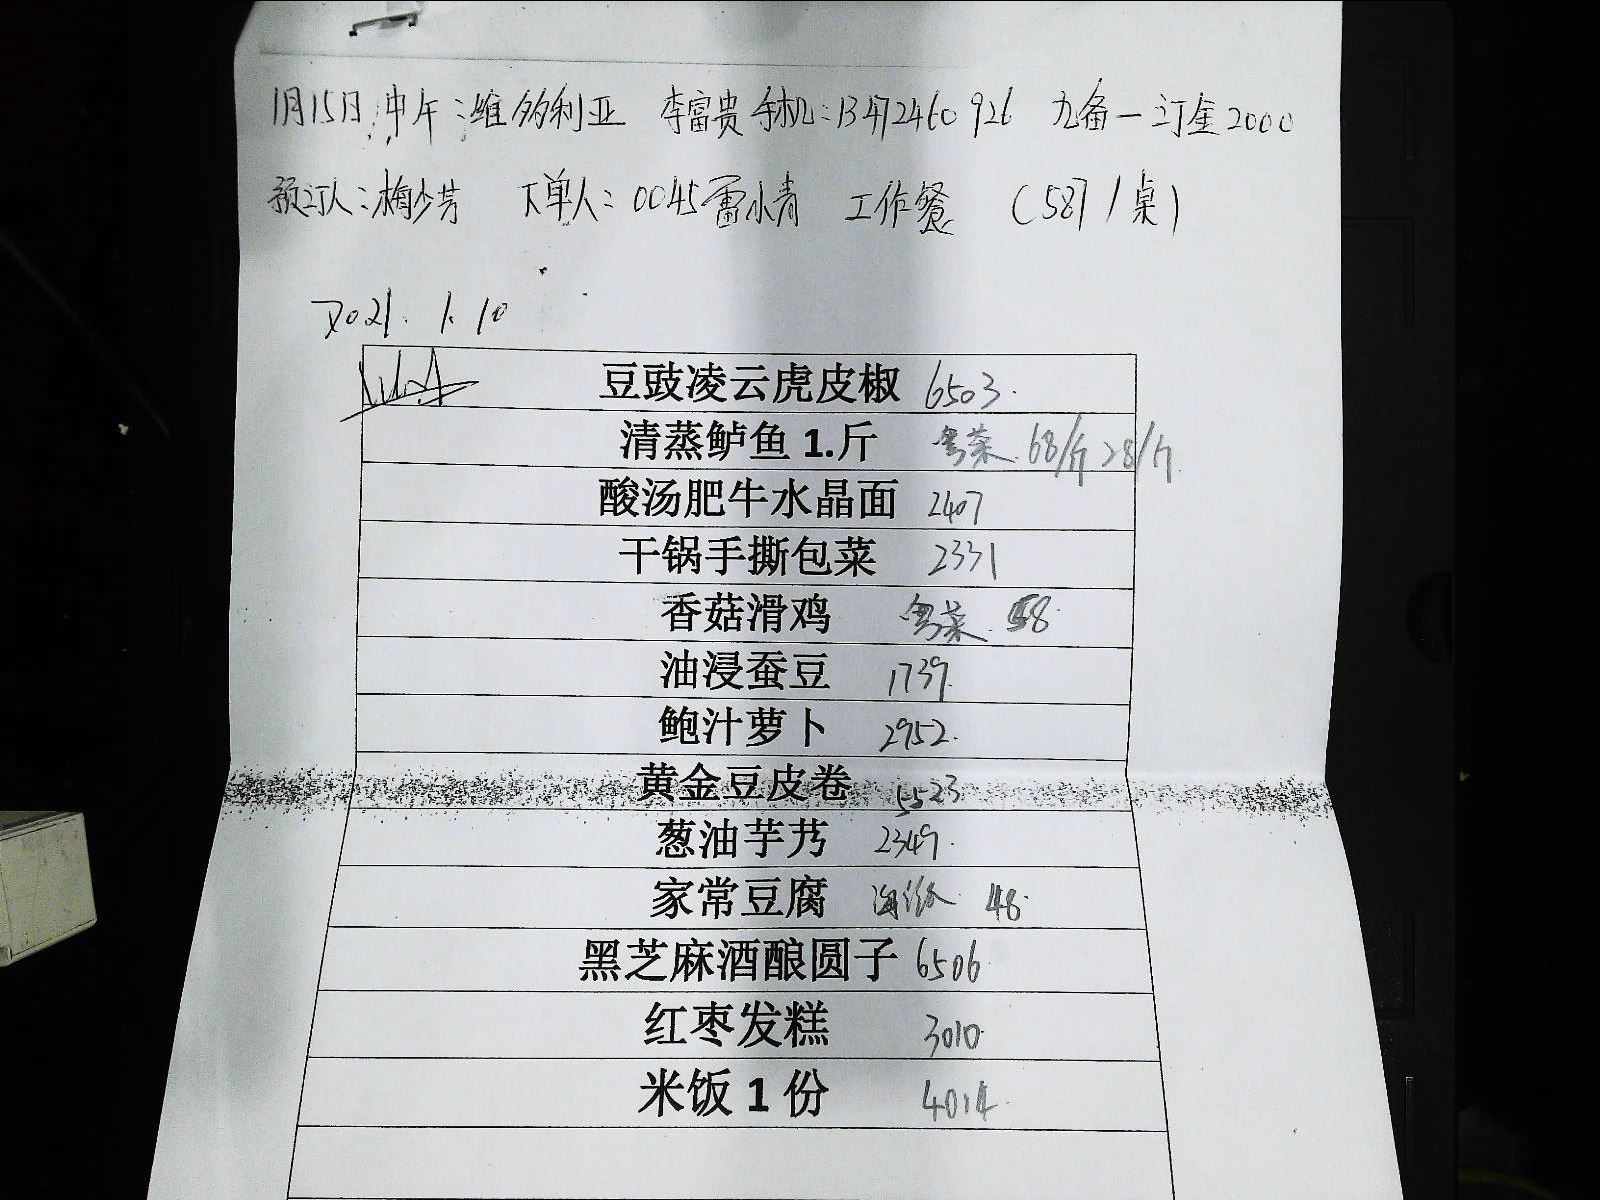 1月15日中午:维多利亚 李富贵 手机:13472460926 九备一 订金2000
预订人:梅少芳 下单人:0045雷小青 工作餐 (587/桌)
2021.1.10
豆豉凌云虎皮椒 6503.
清蒸鲈鱼 1.斤 粤菜 68/斤 28/斤.
酸汤肥牛水晶面 2407
干锅手撕包菜 2331
香菇滑鸡 粤菜. 58
油浸蚕豆 1739.
鲍汁萝卜 2952.
黄金豆皮卷 5523
葱油芋艿 2349.
家常豆腐 48.
黑芝麻酒酿圆子 6506
红枣发糕 3010
米饭 1 份 4014.